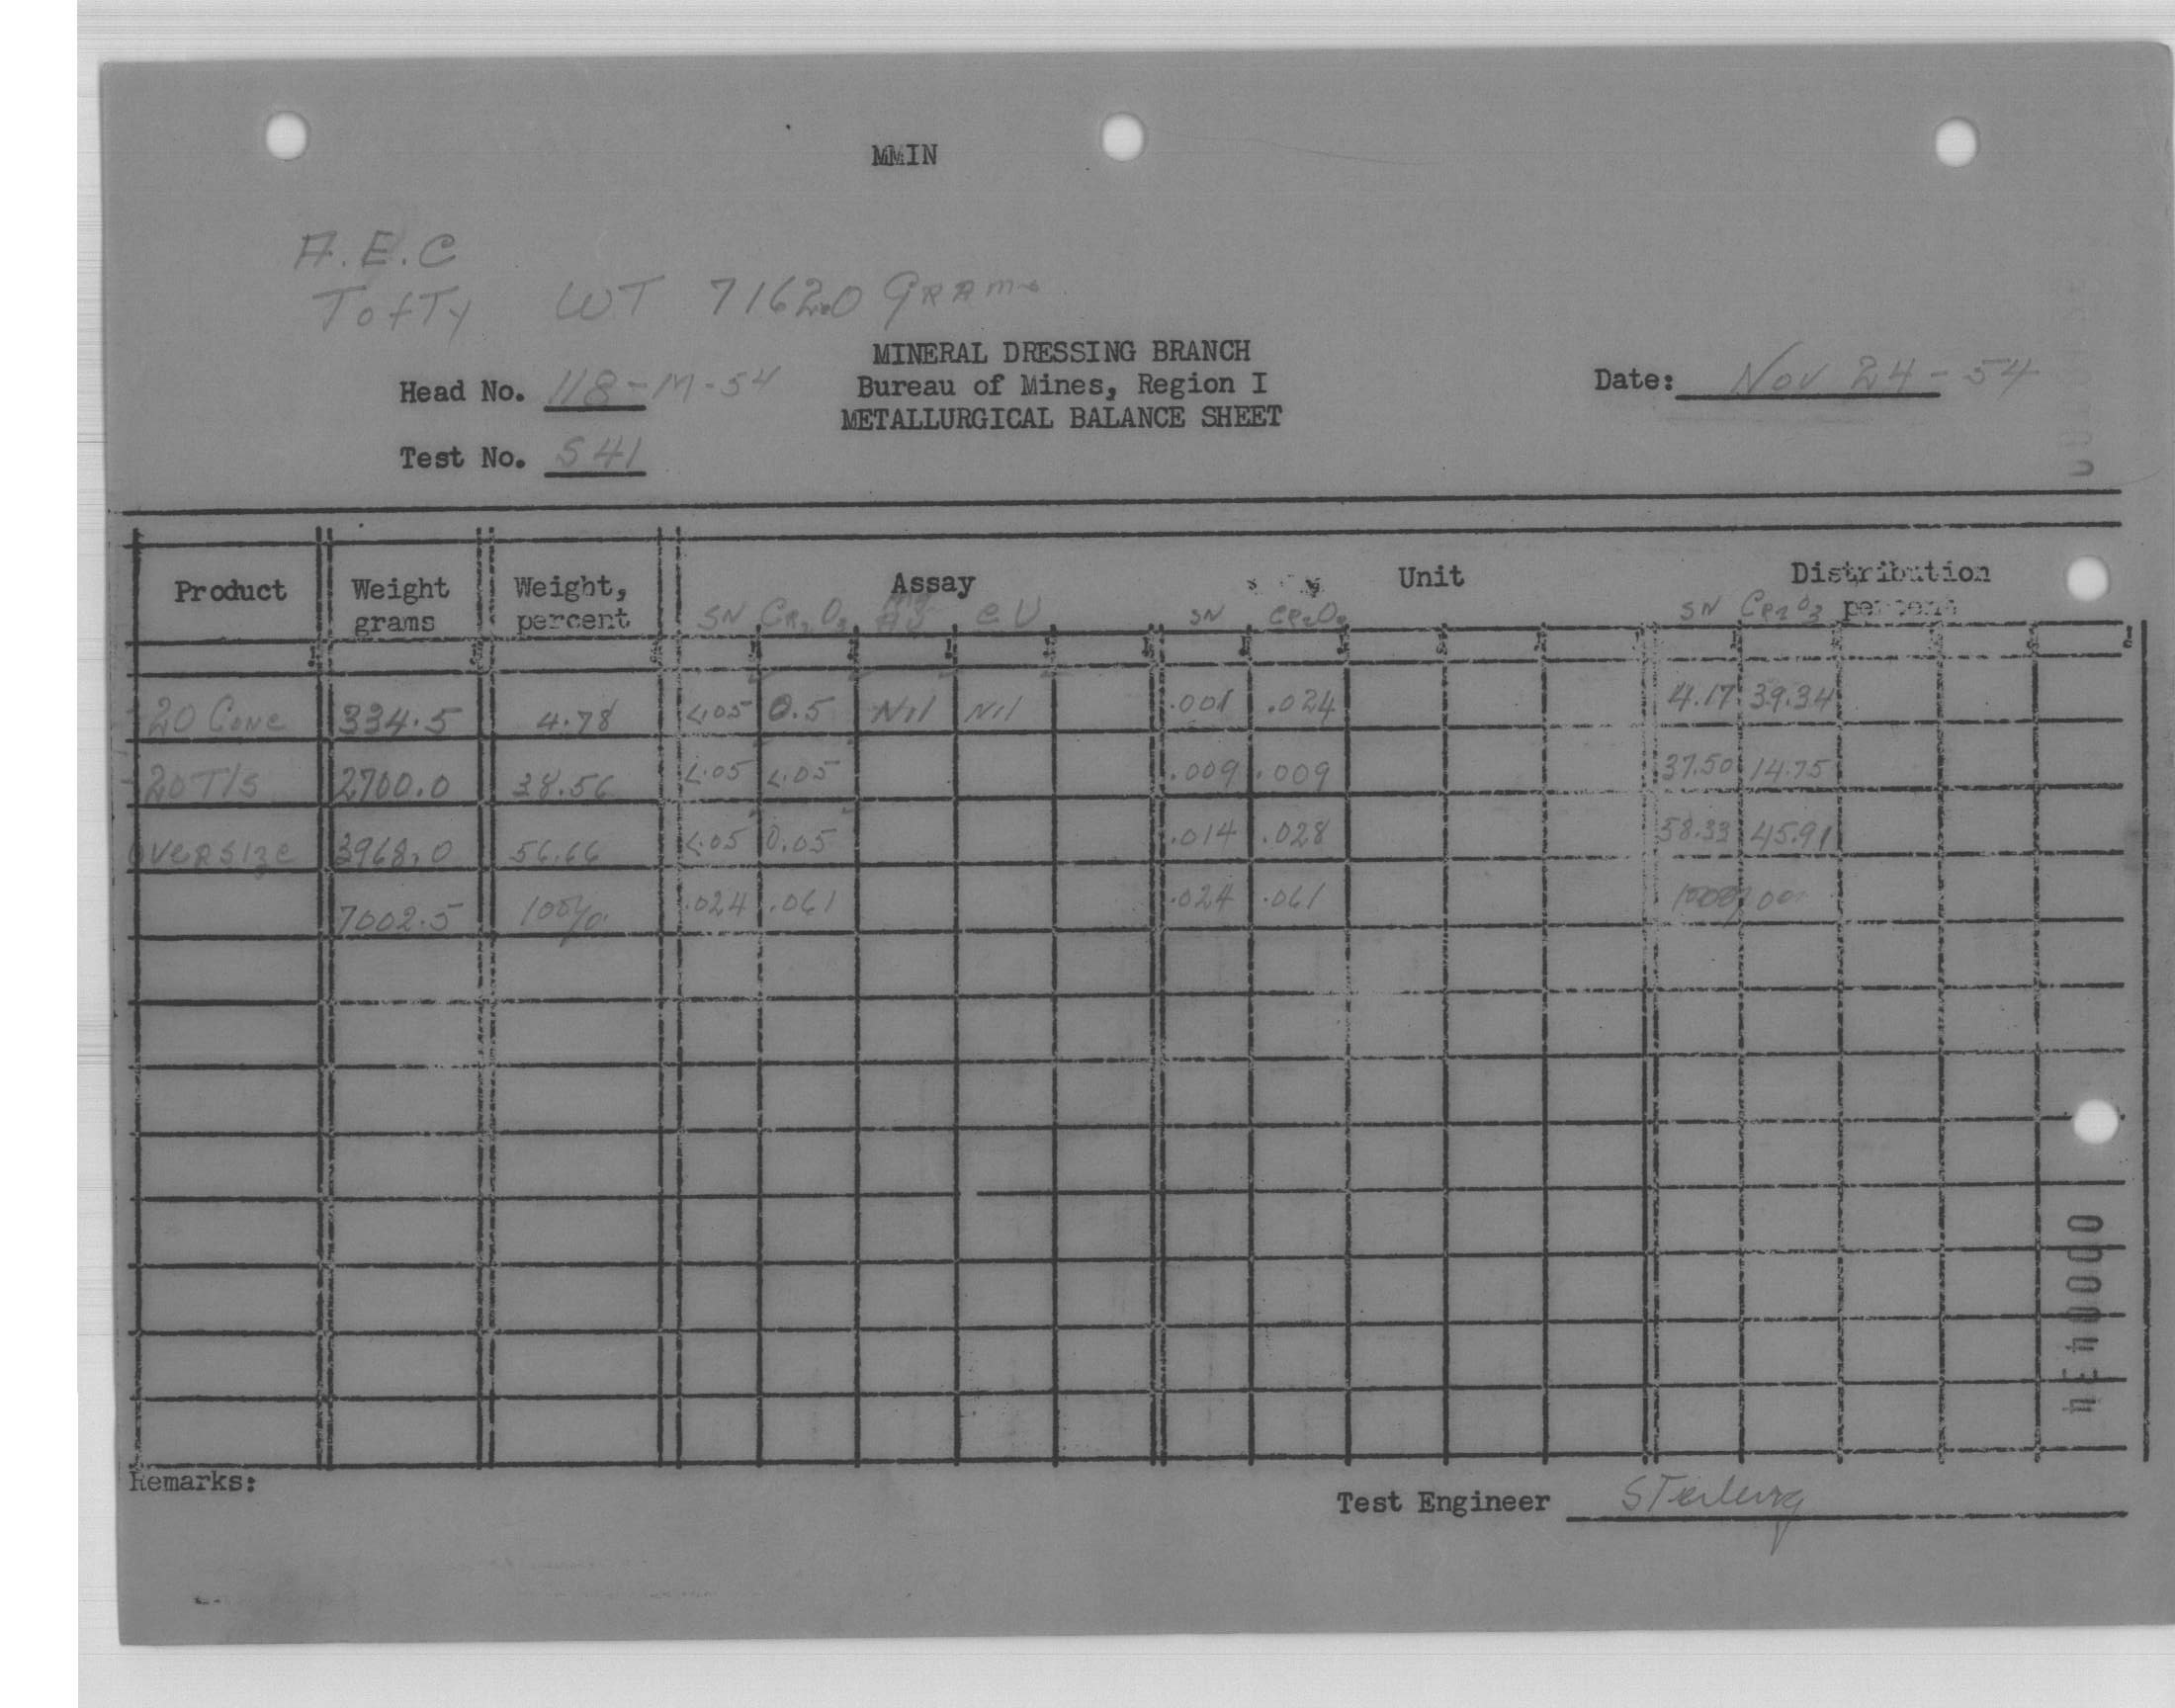 MMIN
A.E.C
Tofty WT 7162.0 Grams
MINERAL DRESSING BRANCH
Head No. 118-M-54 Bureau of Mines, Region I Date: Nov 24-54
METALLURGICAL BALANCE SHEET
Test No. 541
Product Weight grams Weight, percent Assay Unit Distribution percent
SN Cr2O3 eU SN Cr2O3 SN Cr2O3
-20 Conc 334.5 4.78 <.05 0.5 Nil Nil .001 .024 4.17 39.34
-20 T/S 2700.0 38.56 <.05 <.05 .009 .009 37.50 14.75
Oversize 3968.0 56.66 <.05 0.05 .014 .028 58.33 45.91
7002.5 100% .024 .061 .024 .061
Remarks:
Test Engineer Sterling
000434